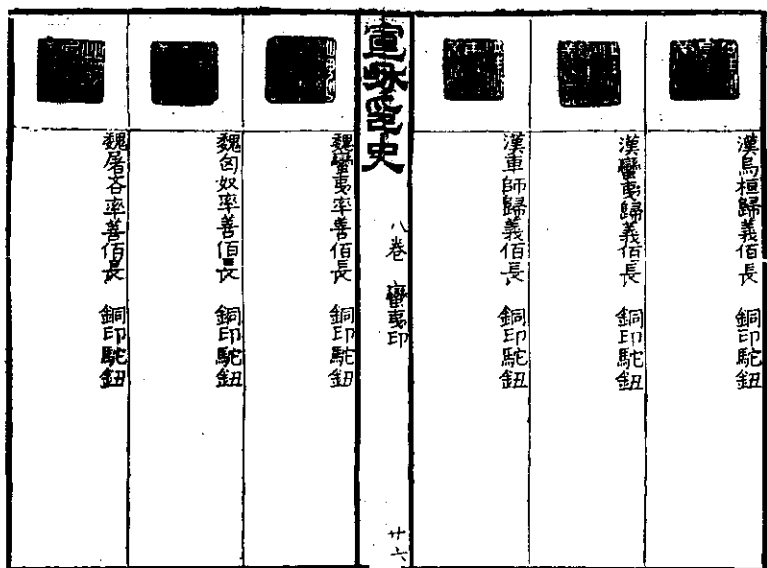 漢烏桓歸義佰長　銅印駝鈕
漢蠻夷歸義佰長　銅印駝鈕
漢車師歸義佰長　銅印駝鈕
宣和印史
八卷　蠻夷印
廿六
魏蠻夷率善佰長　銅印駝鈕
魏匈奴率善佰長　銅印駝鈕
魏屠各率善佰長　銅印駝鈕